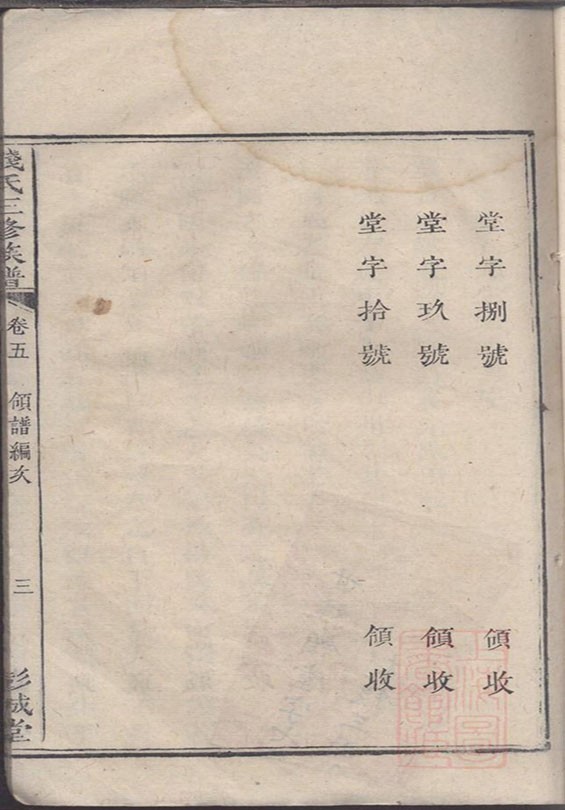 堂字捌號 領收
堂字玖號 領收
堂字拾號 領收
錢氏三修族譜 卷五 領譜編次 三 彭城堂